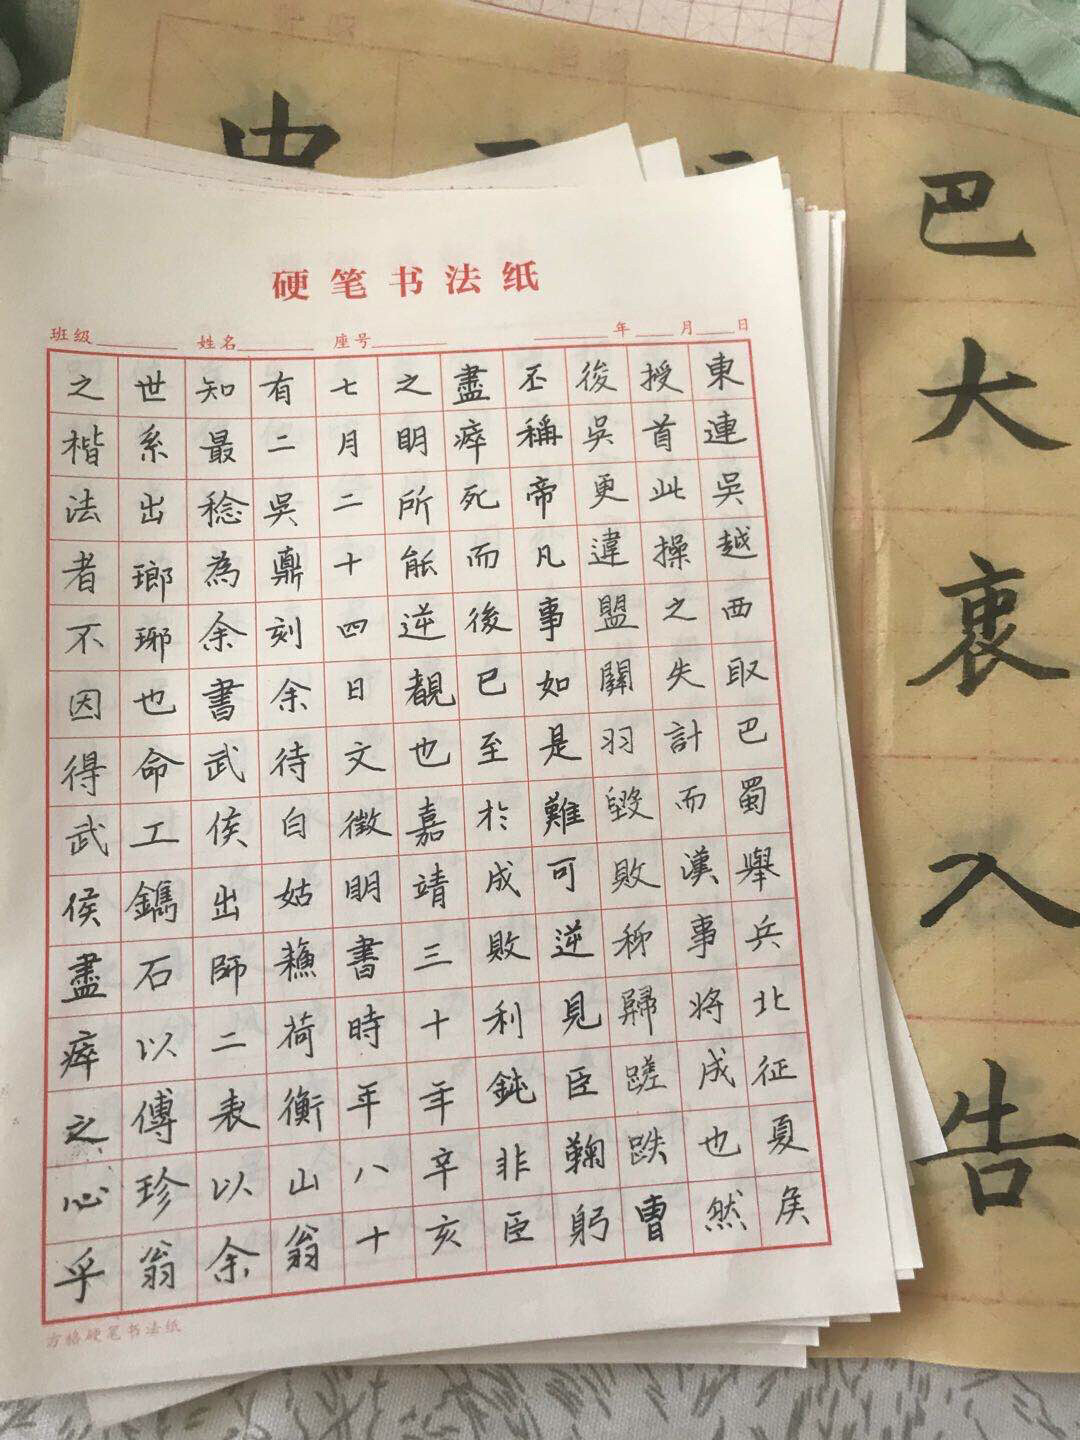 硬笔书法纸
班级 姓名 座号 年 月 日
東連吳越西取巴蜀舉兵北征夏矦
授首此操之失計而漢事將成也然
後吳更違盟關羽毀敗秭歸蹉跌曹
丕稱帝凡事如是難可逆見臣鞠躬
盡瘁死而後已至於成敗利鈍非臣
之明所能逆覩也嘉靖三十年辛亥
七月二十四日文徵明書時年八十
有二吳鼎刻余待自姑蘓荷衡山翁
知最稔為余書武侯出師二表以余
世系出瑯琊也命工鐫石以傳珍翁
之楷法者不因得武侯盡瘁之心乎
方格硬笔书法纸
巴大衷入告